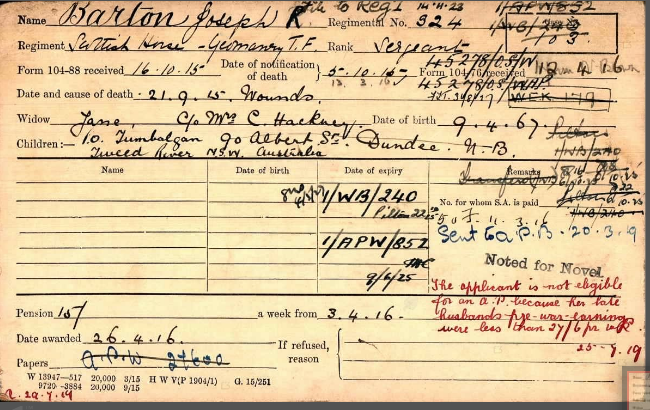 File to Regl 14.11.23 1/APW/852
Name Barton Joseph R. Regimental No. 324 1/WB/240
Regiment Scottish Horse - Yeomanry T.F. Rank Sergeant 45278/05/W
Form 104-88 received 16.10.15 Date of notification of death } 5.10.15 Form 104-76 received 12.4.16
13.3.16 45278/05/W
Date and cause of death - 21.9.15. Wounds.
Widow Jane, C/o Mrs C. Hackney, Date of birth 9.4.67.
Children:— 10. Tumbalgan 90 Albert St. Dundee. N.B. 1/WB/240
Tweed River N.S.W. Australia
Name Date of birth Date of expiry Remarks
1/WB/240
No. for whom S.A. is paid 1/WB/240
11.3.16
1/APW/852 Sent to A.P.B. 20.3.19
9/6/25 Noted for Novel
The applicant is not eligible
for an A.P. because her late
husbands pre-war earning
were less than 27/6 pr wk
25-7.19
Pension 15/ a week from 3.4.16.
Date awarded 26.4.16. If refused, reason
Papers A.P.W 27600
W 13947—517 20,000 3/15 H W V(P 1904/1) G. 15/251
9720 -3884 20,000 9/15
R. 29.7.19